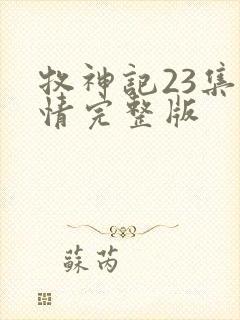 牧神記23集
情完整版
蘇芮